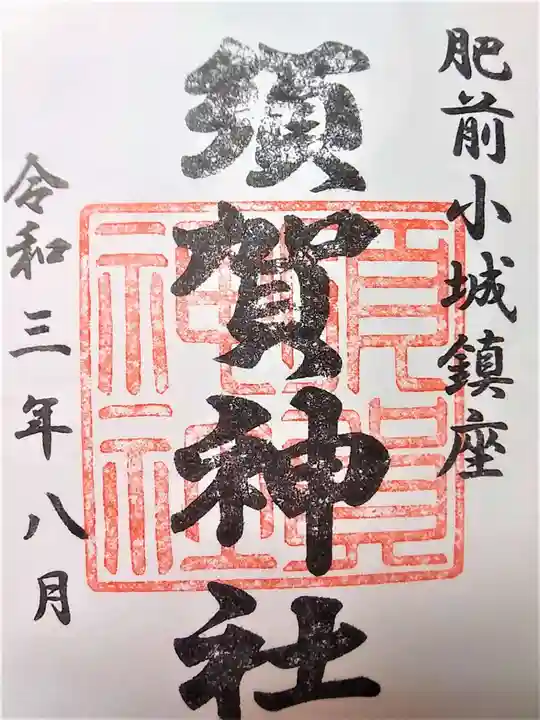 肥前小城鎮座
須賀神社
令和三年八月